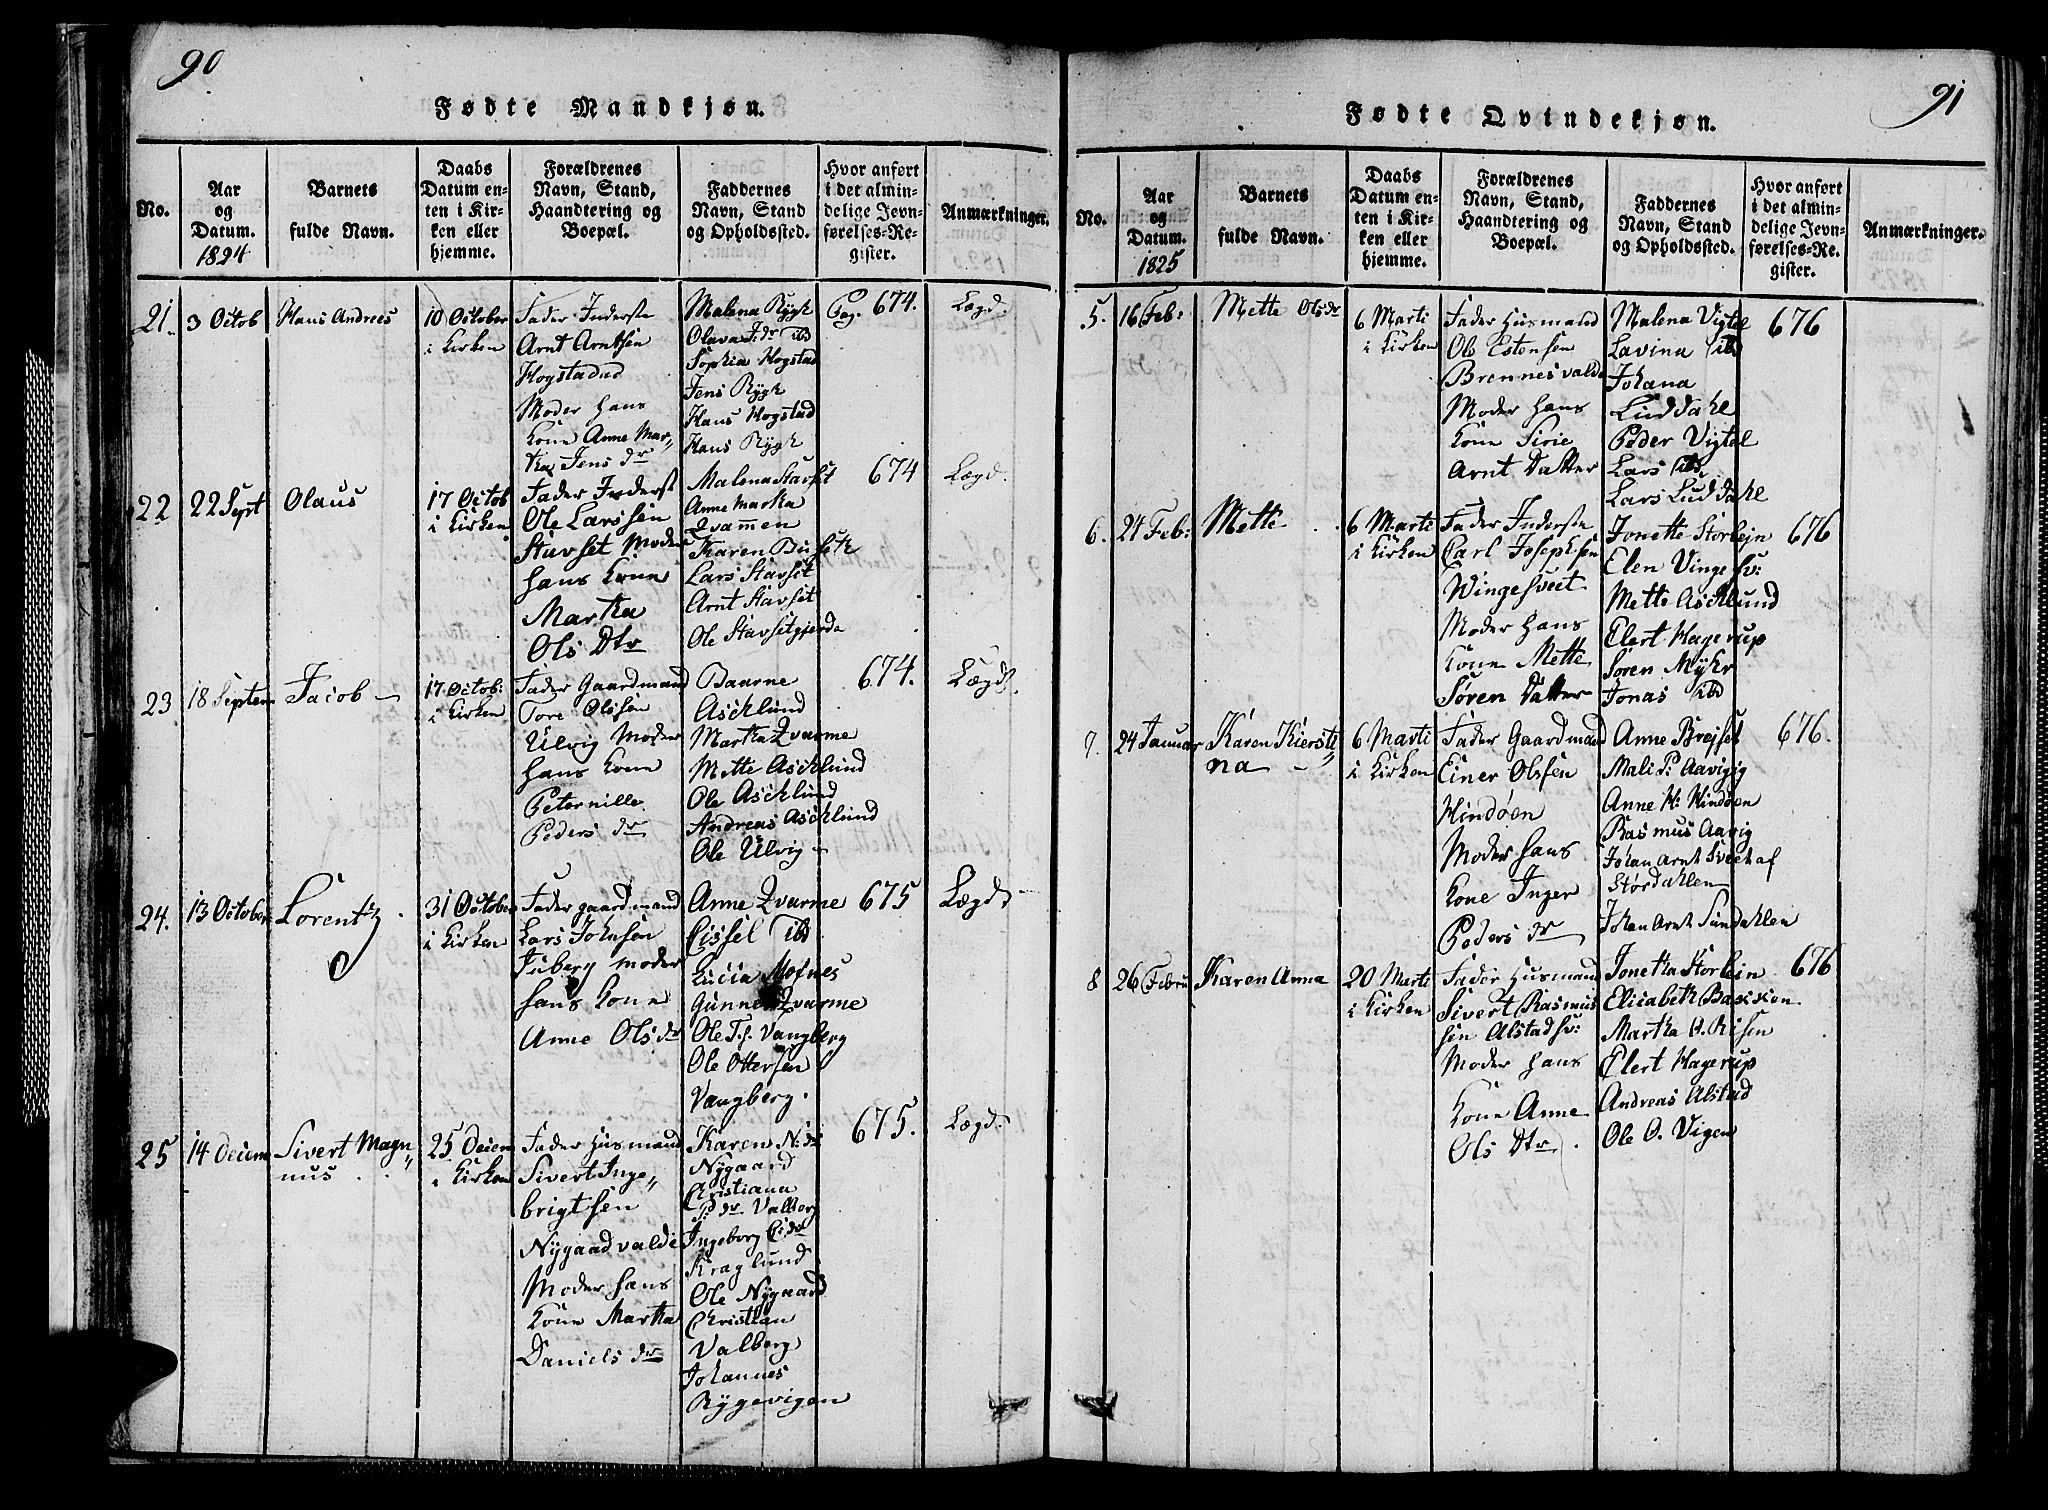 90
Fødte Mandkjøn.
No.
Aar
og
Datum.
1824
Barnets
fulde Navn.
Daabs
Datum en-
ten i Kir-
ken eller
hjemme.
Forældrenes
Navn, Stand,
Haandtering og
Boepæl.
Faddernes
Navn, Stand
og Opholdssted.
Hvor anført
i det almin-
delige Jevn-
førelses-Re-
gister.
Anmærkninger.
21.
3 Octob
Hans Andreas
10 October
i Kirken
Fader Inderste
Arnt Arntsen
Hogstadud
Moder hans
Kone Anne Mar„
tha Jens dr
Malena Rygh
Olava J.dr ibd
Sophia Hogstad
Jens Rygh
Hans Hogstad
Hans Rygh
Pag. 674.
Lægd.
22
22 Sept
Olaus
17 Octob
i Kirken
Fader Inderst
Ole Larssen
Stavset Moder
hans Kone
Martha
Ols Dtr
Malena Stavset
Anne Martha
Qvammen
Karen Buseth
Lars Stavset
Arnt Stavset
Ole Stavsetgjerde
674
Lægd.
23
18 Septem
Jacob
17 Octob:
i Kirken
Fader Gaardmand
Tore Olssen
Ulvig Moder
hans Kone
Peternille
Peders dr
Baarne
Aschlund
Martha Qvarme
Mette Aschlund
Ole Aschlund
Andreas Aschlund
Ole Ulvig
674.
Lægd.
24.
13 October
Lorentz
31 October
i Kirken
Fader gaardmand
Lars Johnsen
Juberg moder
hans Kone
Anne Ols dr
Anne Qvarme
Cissel ibd
Lucia Mofnes
Gunne Qvarme
Ole T.s. Vangberg
Ole Ottersen
Vangberg.
675
Lægd
25
14 Decem
Sivert Magn„
nus
25 Decem
i Kirken
Fader Husmand
Sivert Inge„
brigtsen
Nygaad valdi
Moder hans
Kone Martha
Daniels dr
Karen N: dr
Nygaard
Christiana
P: dr Valberg
Ingeborg C: dr
Kraglund
Ole Nygaard
Christian
Valberg
Johannes
Rygevigen
675.
Lægd.
91
Fødte Qvindekjøn.
No.
Aar
og
Datum.
1825
Barnets
fulde Navn.
Daabs
Datum en-
ten i Kir-
ken eller
hjemme.
Forældrenes
Navn, Stand,
Haandtering og
Boepæl.
Faddernes
Navn, Stand
og Opholdssted.
Hvor anført
i det almin-
delige Jevn-
førelses-Re-
gister.
Anmærkninger.
5.
16 Feb:
Mette Olsdr
6 Marti
i Kirken
Fader Husmand
Ole Estensen
Brennesvalde
Moder hans
Kone Sirie
Arnt Datter
Malena Vigtel
Lavina ibd
Johana
Luddahl
Peder Vigtel
Lars ibd
Lars Luddahl
676
6.
24 Feb:
Mette
6 Marti
i Kirken
Fader Inderste
Carl Josephsen
Wingesveit
Moder hans
Kone Mette
Søren Datter
Jonette Storlejn
Elen Vinge sv:
Mette Aschlund
Elert Hagerup
Søren Myhr
Jonas ibd
676
7.
24 Januar
Karen Kiersti„
na
6 Marti
i Kirken
Fader Gaardmand
Einer Olssen
Hindøen
Moder hans
Kone Inger
Peders dr
Anne Brejset
Mali P: Aavigig
Anne H: Hindøen
Rasmus Aavig
Johan Arnt Sveet af
Stördahlen
Johan Arnt Sundahlen
676.
8
26 Febru
Karen Anna
20 Marti
i Kirken
Fader Husmand
Sivert Rasmus
sen Alstad sv:
Moder hans
Kone Anne
Ols Dtr.
Jonetha Storlein
Elisabeth Baxxion.
Martha A. Risen
Elert Hagerup
Andreas Alstad
Ole O. Vigen
676